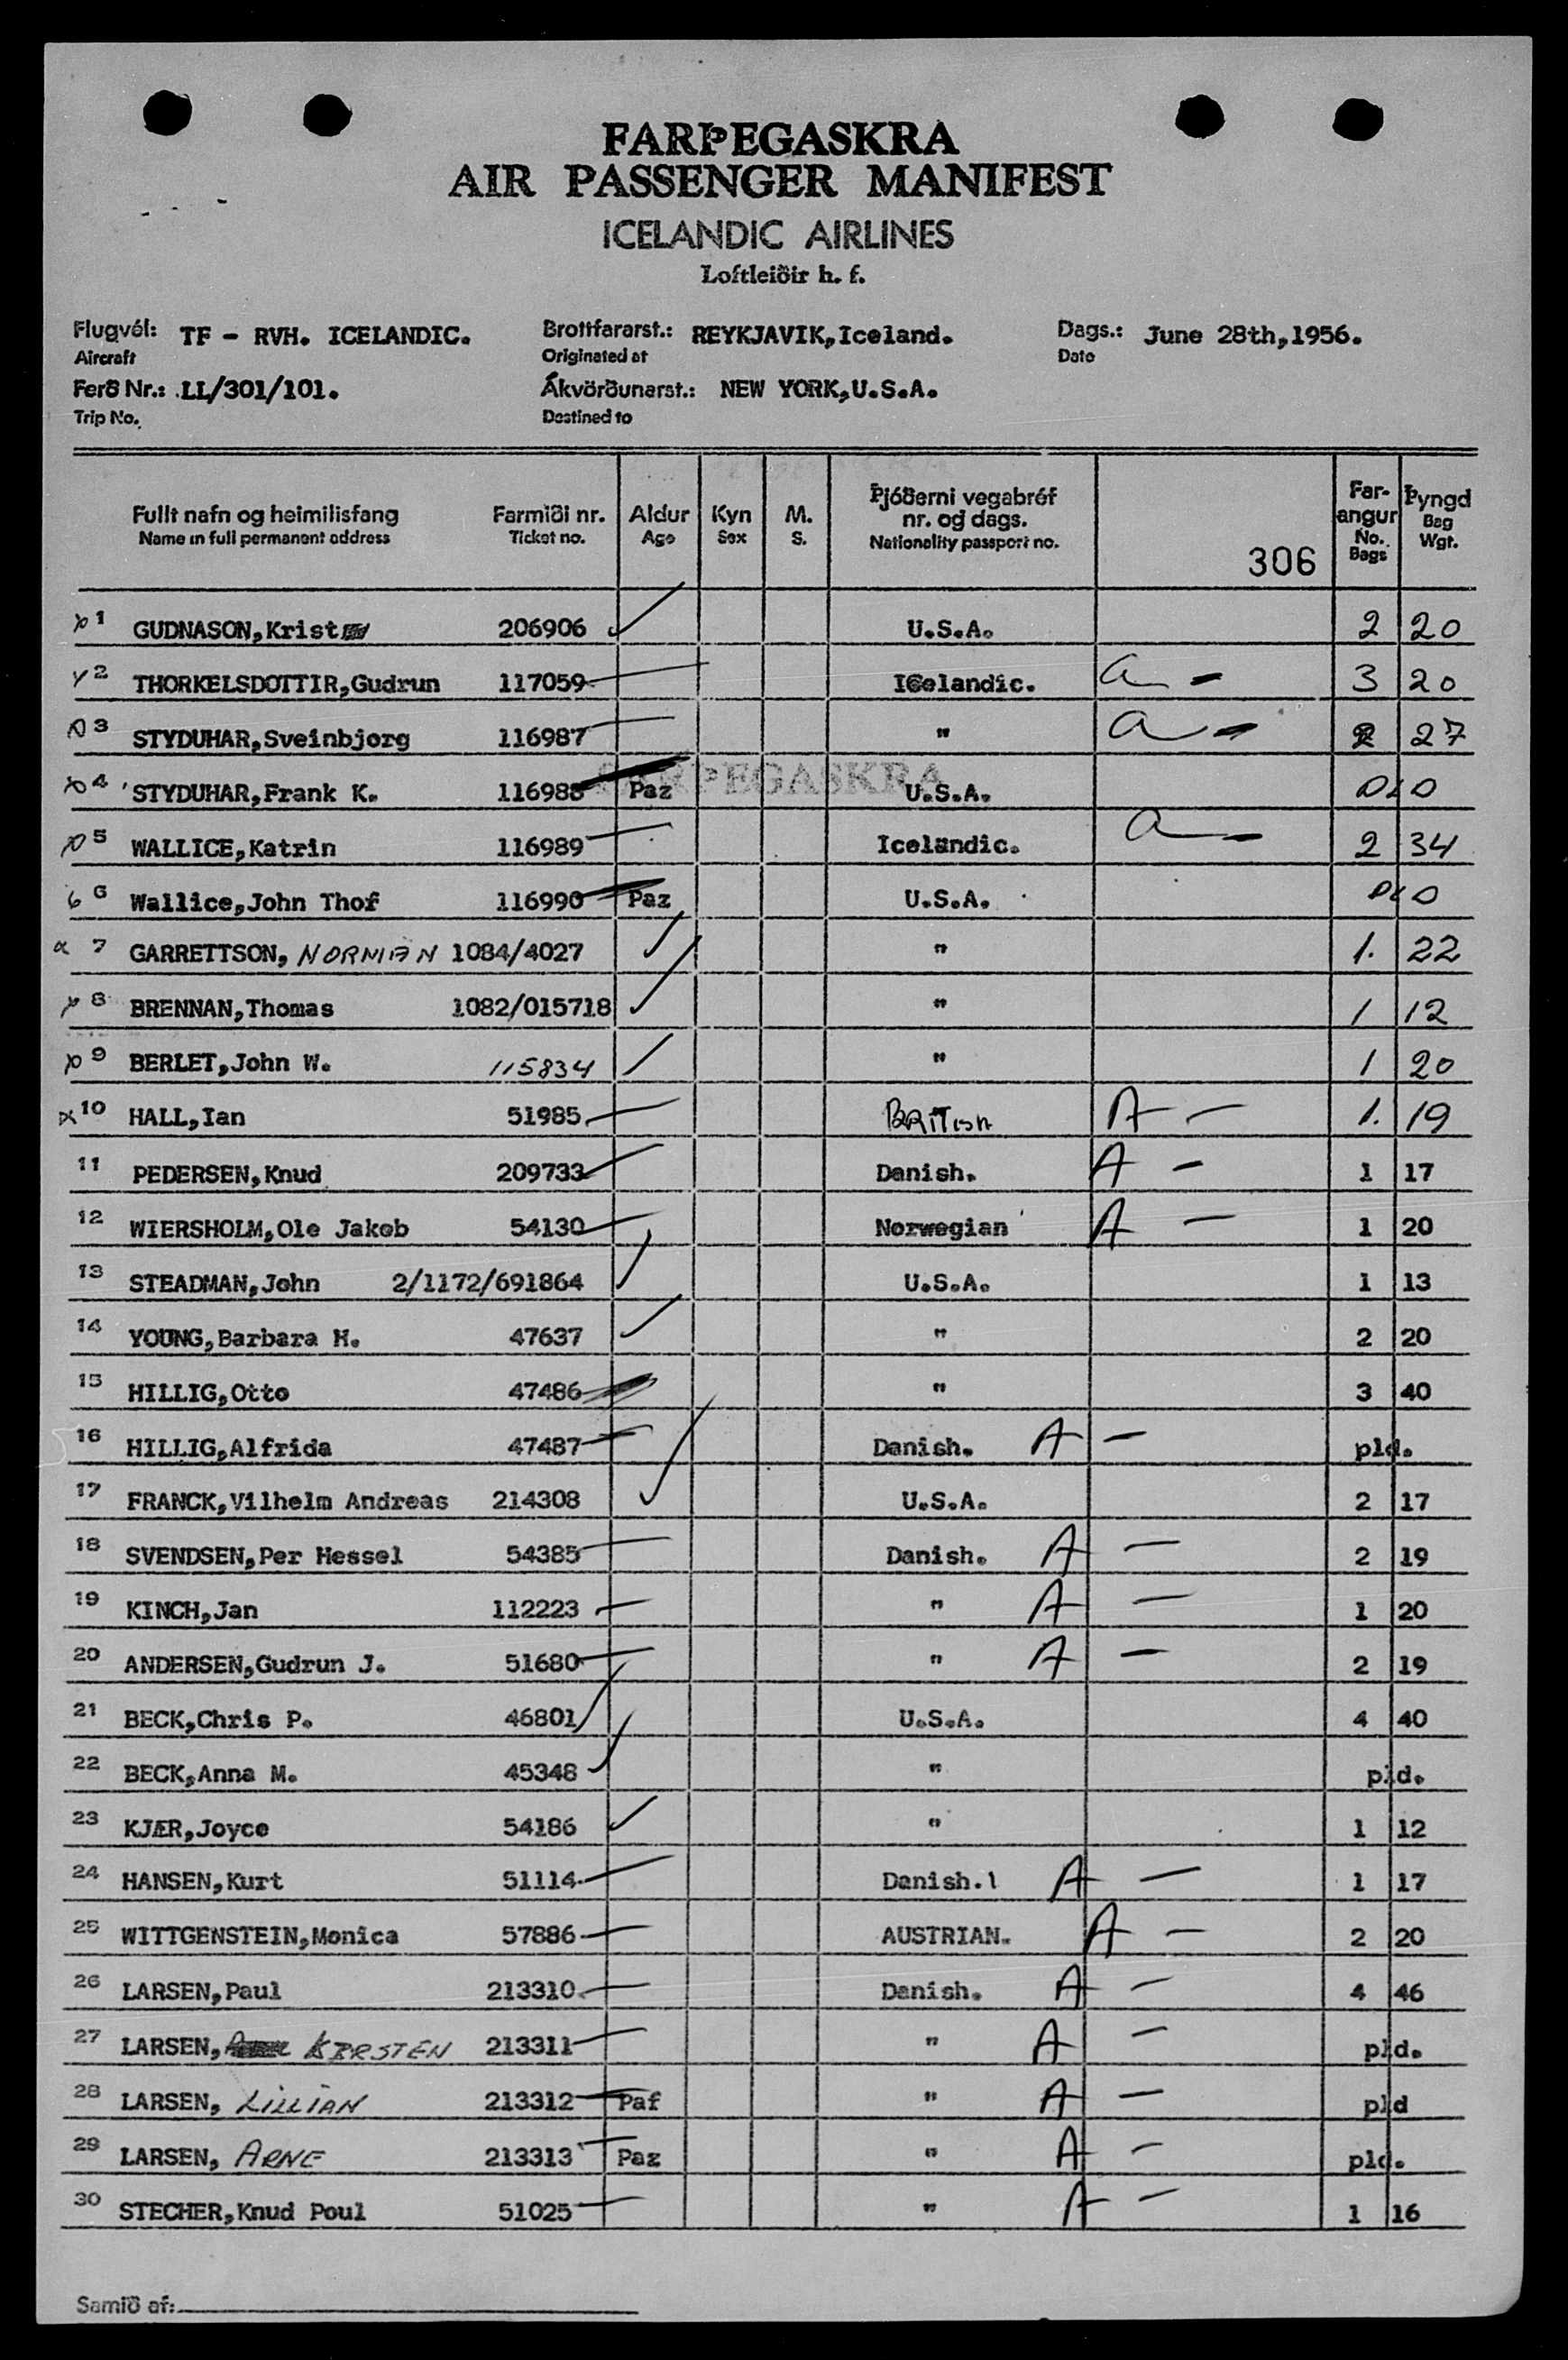 FARÞEGASKRA
AIR PASSENGER MANIFEST
ICELANDIC AIRLINES
Loftleiðir h. f.
Flugvél: TF - RVH. ICELANDIC. Brottfararst.: REYKJAVIK,Iceland. Dags.: June 28th,1956.
Aircraft Originated at Date
Ferð Nr.: LL/301/101. Ákvörðunarst.: NEW YORK,U.S.A.
Trip No. Destined to
Fullt nafn og heimilisfang Farmiði nr. Aldur Kyn M. Þjóðerni vegabréf nr. og dags. Far-angur Þyngd
Name in full permanent address Ticket no. Age Sex S. Nationality passport no. 306 No. Bags Bag Wgt.
1 GUDNASON,Krist 206906 U.S.A. 2 20
2 THORKELSDOTTIR,Gudrun 117059 ICelandic. a - 3 20
3 STYDUHAR,Sveinbjorg 116987 " a - 2 27
FARÞEGASKRA
4 STYDUHAR,Frank K. 116988 Paz U.S.A. PLD
5 WALLICE,Katrin 116989 Icelandic. a - 2 34
6 Wallice,John Thof 116990 Paz U.S.A. PLD
7 GARRETTSON, NORMAN 1084/4027 " 1. 22
8 BRENNAN,Thomas 1082/015718 " 1 12
9 BERLET,John W. 115834 " 1 20
10 HALL,Ian 51985 BRITISH A - 1. 19
11 PEDERSEN,Knud 209733 Danish. A - 1 17
12 WIERSHOLM,Ole Jakob 54130 Norwegian A - 1 20
13 STEADMAN,John 2/1172/691864 U.S.A. 1 13
14 YOUNG,Barbara H. 47637 " 2 20
15 HILLIG,Otto 47486 " 3 40
16 HILLIG,Alfrida 47487 Danish. A - pld.
17 FRANCK,Vilhelm Andreas 214308 U.S.A. 2 17
18 SVENDSEN,Per Hessel 54385 Danish. A - 2 19
19 KINCH,Jan 112223 " A - 1 20
20 ANDERSEN,Gudrun J. 51680 " A - 2 19
21 BECK,Chris P. 46801 U.S.A. 4 40
22 BECK,Anna M. 45348 " pld.
23 KJÆR,Joyce 54186 " 1 12
24 HANSEN,Kurt 51114 Danish. A - 1 17
25 WITTGENSTEIN,Monica 57886 AUSTRIAN. A - 2 20
26 LARSEN,Paul 213310 Danish. A - 4 46
27 LARSEN, KIRSTEN 213311 " A - pld.
28 LARSEN, LILLIAN 213312 Paf " A - pld
29 LARSEN, ARNE 213313 Paz " A - pld.
30 STECHER,Knud Poul 51025 " A - 1 16
Samið af: